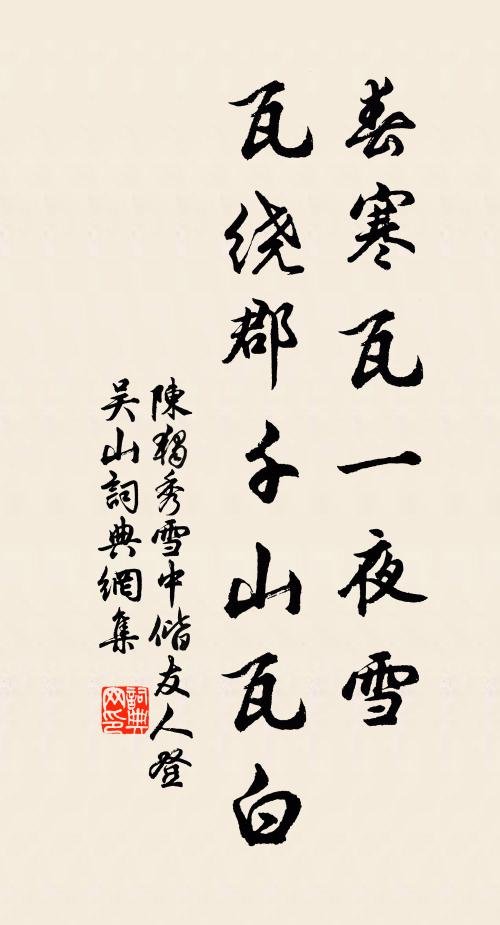 春寒瓦一夜雪
瓦绕郡千山瓦白
陳獨秀雪中偕友人登
吴山詞典網集
詞典网印